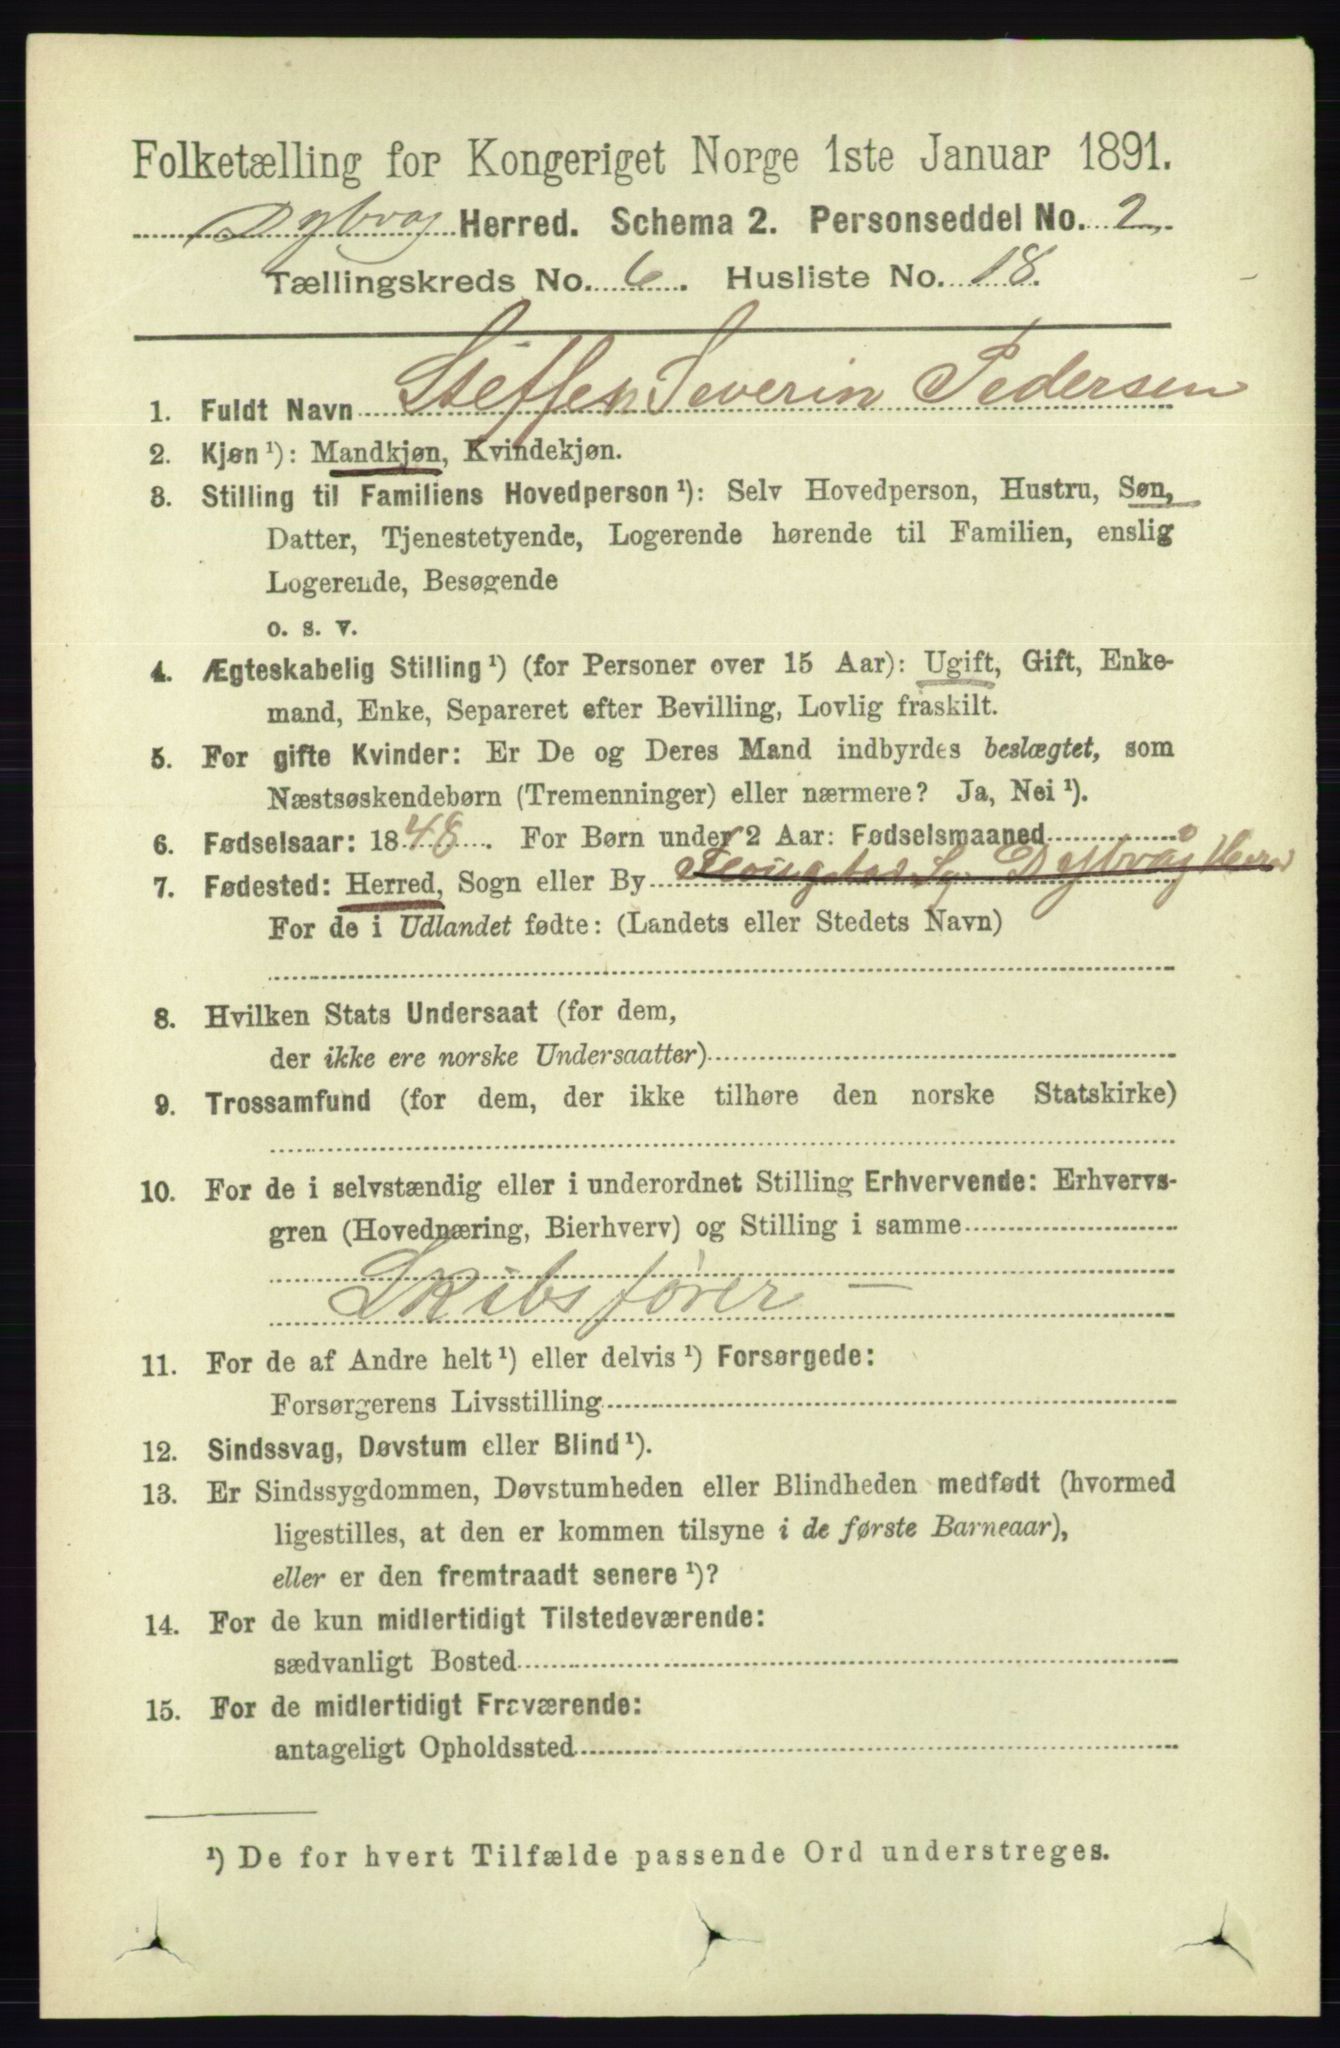 Folketælling for Kongeriget Norge 1ste Januar 1891.
Dybvag Herred. Schema 2. Personseddel No. 2.
Tællingskreds No. 6. Husliste No. 18.
1. Fuldt Navn Steffen Severin Pedersen
2. Kjøn ¹): Mandkjøn, Kvindekjøn.
3. Stilling til Familiens Hovedperson ¹): Selv Hovedperson, Hustru, Søn,
Datter, Tjenestetyende, Logerende hørende til Familien, enslig
Logerende, Besøgende
o. s. v.
4. Ægteskabelig Stilling ¹) (for Personer over 15 Aar): Ugift, Gift, Enke-
mand, Enke, Separeret efter Bevilling, Lovlig fraskilt.
5. For gifte Kvinder: Er De og Deres Mand indbyrdes beslægtet, som
Næstsøskendebørn (Tremenninger) eller nærmere? Ja, Nei ¹).
6. Fødselsaar: 1848. For Børn under 2 Aar: Fødselsmaaned
7. Fødested: Herred, Sogn eller By Dybvåg Herred
For de i Udlandet fødte: (Landets eller Stedets Navn)
8. Hvilken Stats Undersaat (for dem,
der ikke ere norske Undersaatter)
9. Trossamfund (for dem, der ikke tilhøre den norske Statskirke)
10. For de i selvstændig eller i underordnet Stilling Erhvervende: Erhvervs-
gren (Hovednæring, Bierhverv) og Stilling i samme
Skibsfører —
11. For de af Andre helt ¹) eller delvis ¹) Forsørgede:
Forsørgerens Livsstilling
12. Sindssvag, Døvstum eller Blind ¹).
13. Er Sindssygdommen, Døvstumheden eller Blindheden medfødt (hvormed
ligestilles, at den er kommen tilsyne i de første Barneaar),
eller er den fremtraadt senere ¹)?
14. For de kun midlertidigt Tilstedeværende:
sædvanligt Bosted
15. For de midlertidigt Fraværende:
antageligt Opholdssted
¹) De for hvert Tilfælde passende Ord understreges.